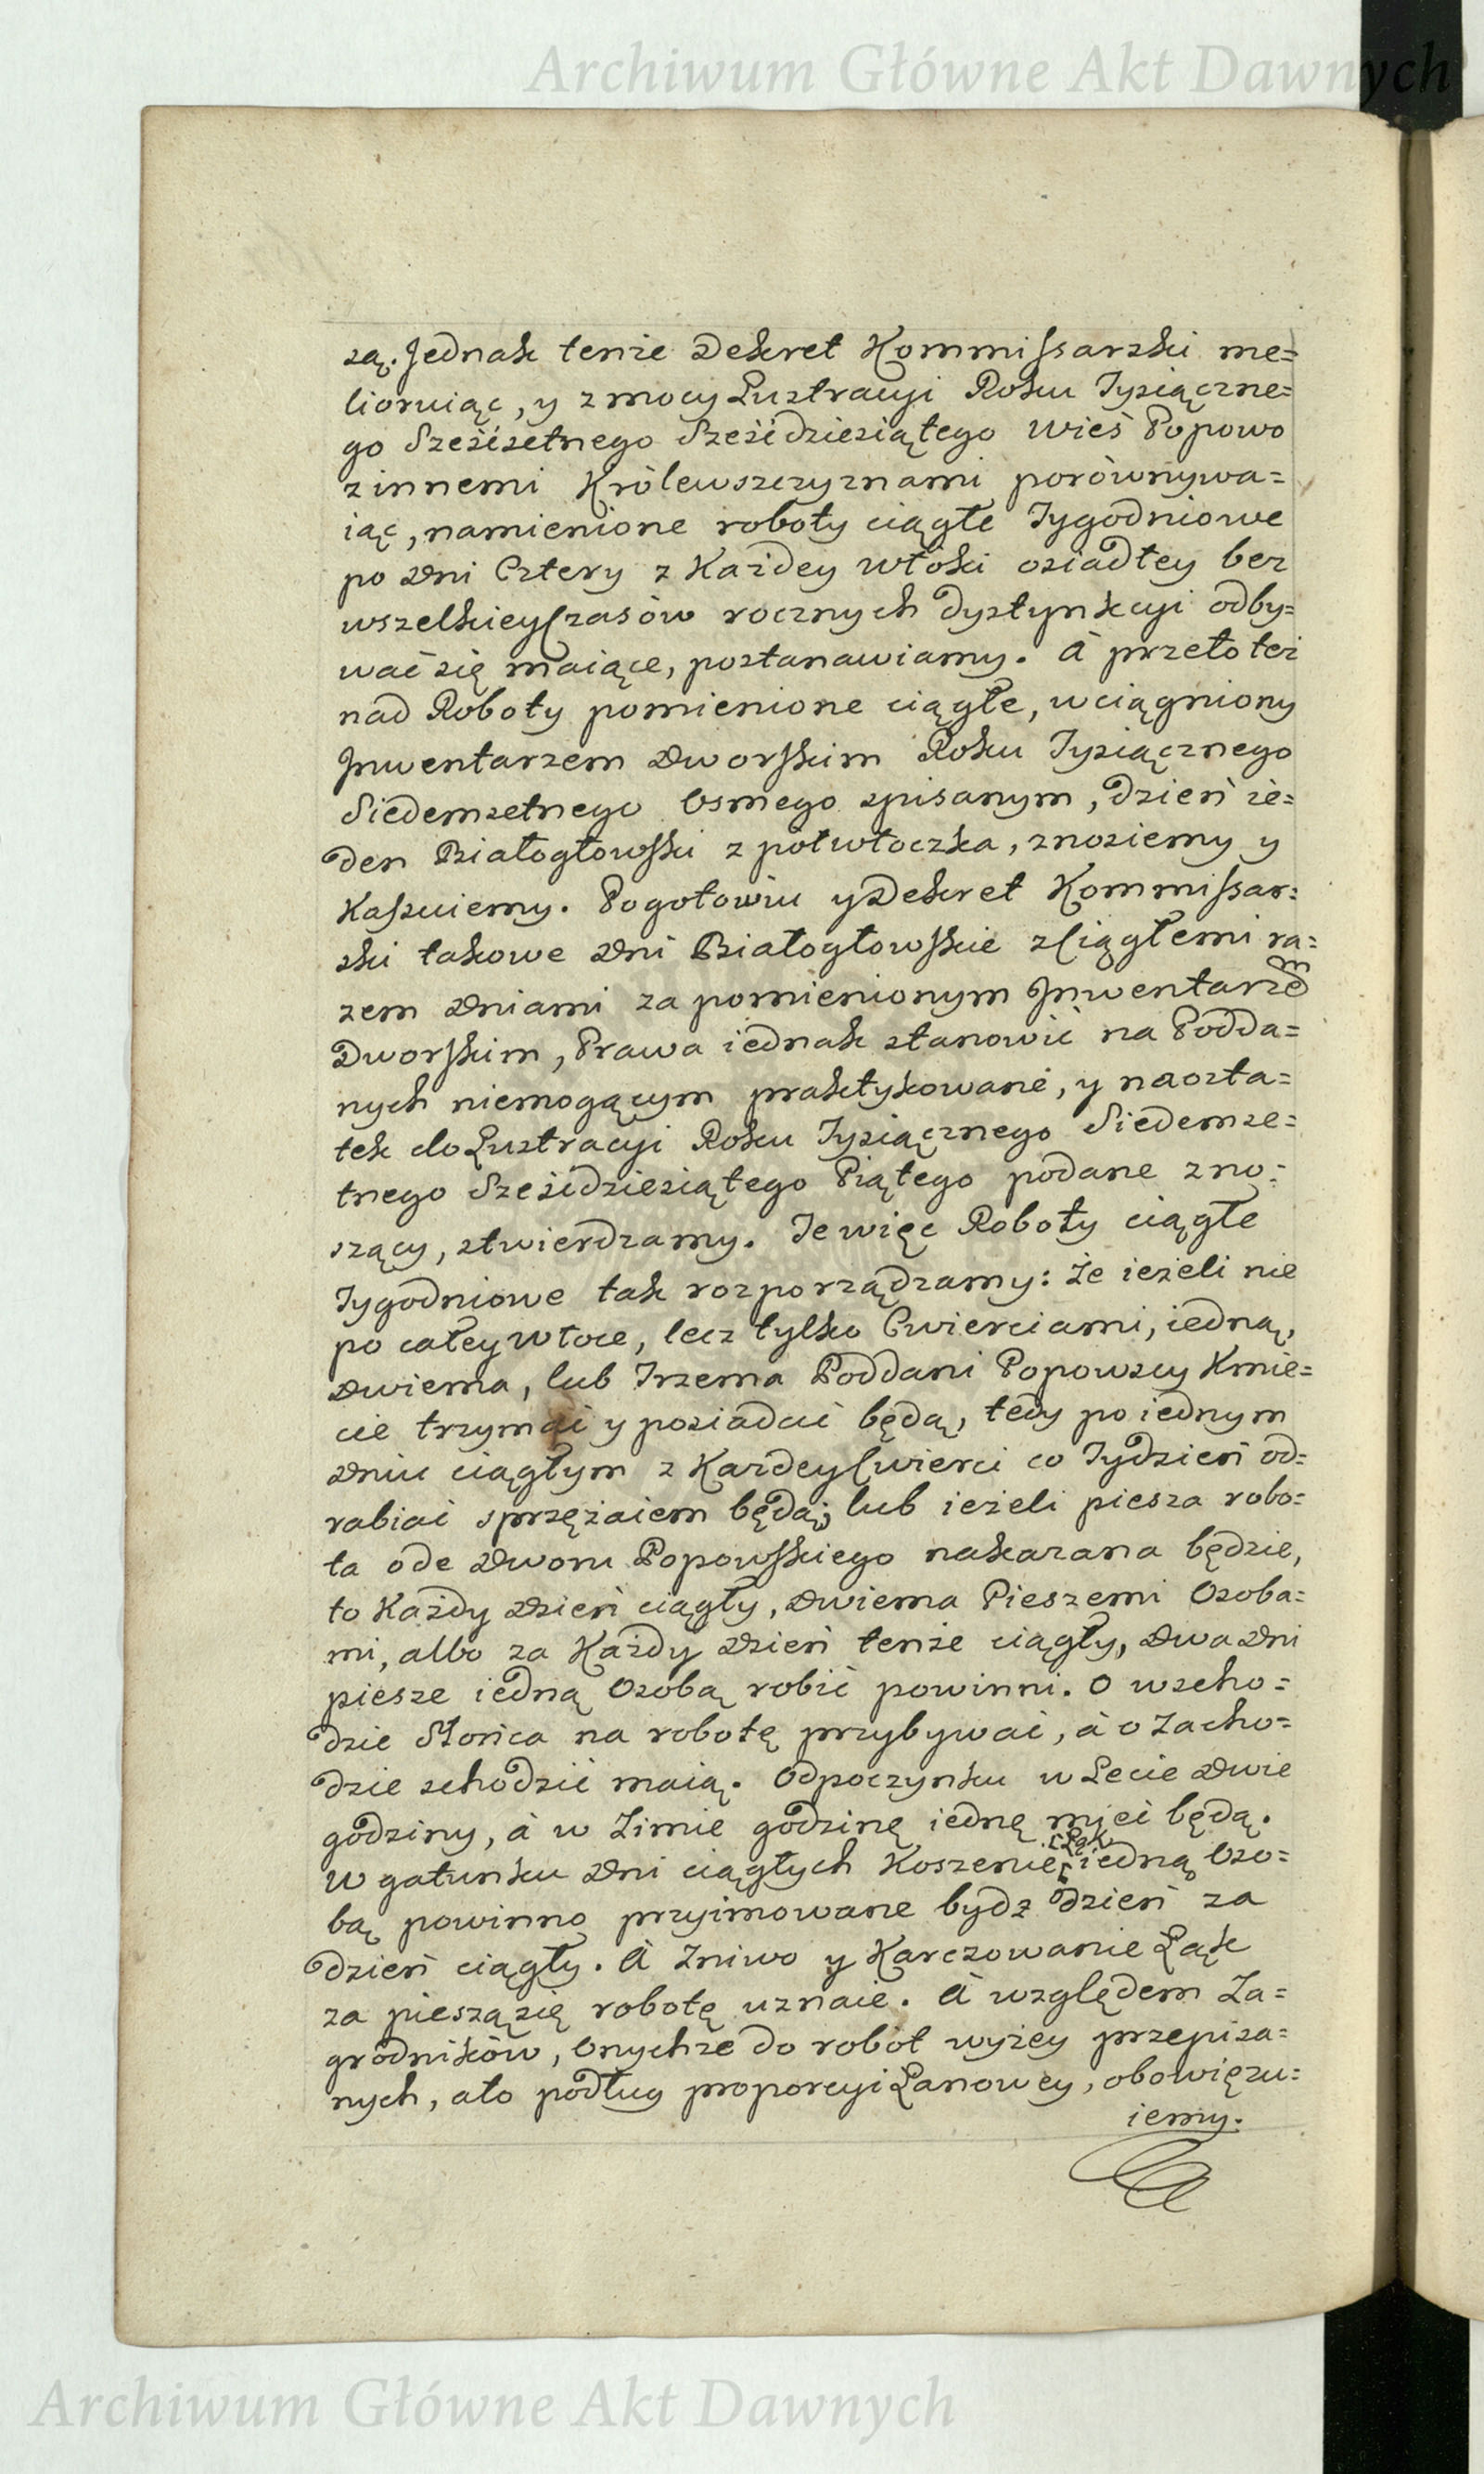 Archiwum Główne Akt Dawnych
są. Jednak tenże Dekret Kommissarski me=
lioruiąc, y z mocy Lustracyi Roku Tysiączne=
go Sześćsetnego Sześćdziesiątego Wieś Popowo
z innemi Królewszczyznami porównywa=
iąc, namienione roboty ciągłe Tygodniowe
po Dni Cztery z Każdey Włóki osiadłey bez
wszelkiey Czasów rocznych dystynkcyi odby=
wać się maiące, postanawiamy. à przeto też
nad Roboty pomienione ciągłe, wciągniony
Jnwentarzem Dworskim Roku Tysiącznego
Siedemsetnego Osmego spisanym, dzień ie=
den Białogłowski z pòłwłoczka, znosiemy y
Kassuiemy. Pogotowiu y Dekret Kommissar=
ski takowe Dni Białogłowskie z Ciągłemi ra=
zem Dniami za pomienionym Jnwentarzem
Dworskim, Prawa iednak stanowić na Podda=
nych niemogącym praktykowané, y naosta=
tek do Lustracyi Roku Tysiącznego Siedemse=
tnego Sześćdziesiątego Piątego podane zno=
szący, stwierdzamy. Te więc Roboty ciągłe
Tygodniowe tak rozporządzamy: że ieżeli nie
po całey Włoce, lecz tylko Cwierciami, iedną,
Dwiema, lub Trzema Poddani Popowscy Kmie=
cie trzymać y posiadać będą, tedy po iednym
Dniu ciągłym z Każdey Cwierci co Tydzień od=
rabiać sprzężaiem będą; lub ieżeli piesza robo=
ta ode Dworu Popowskiego nakazana będzie,
to Każdy Dzień ciągły, Dwiema Pieszemi Osoba=
mi, albo za Każdy Dzień tenże ciągły, Dwa Dni
piesze iedną Osobą robić powinni. O wscho=
dzie Słońca na robotę przybywać, à o Zacho=
dzie schodzić maią. Odpoczynku w Lecie Dwie
godziny, à w Zimie godzinę iednę mieć będą.
W gatunku Dni ciągłych Koszenie Łąk iedną Oso=
bą powinno przyimowane bydz dzień za
dzień ciągły. à Zniwo y Karczowanie Łąk
za pieszą się robotę uznaie. à względem Za=
grodników, Onychże do robót wyżey przepisa=
nych, ato podług proporcyi Łanowey, obowięzu=
iemy.
Archiwum Główne Akt Dawnych